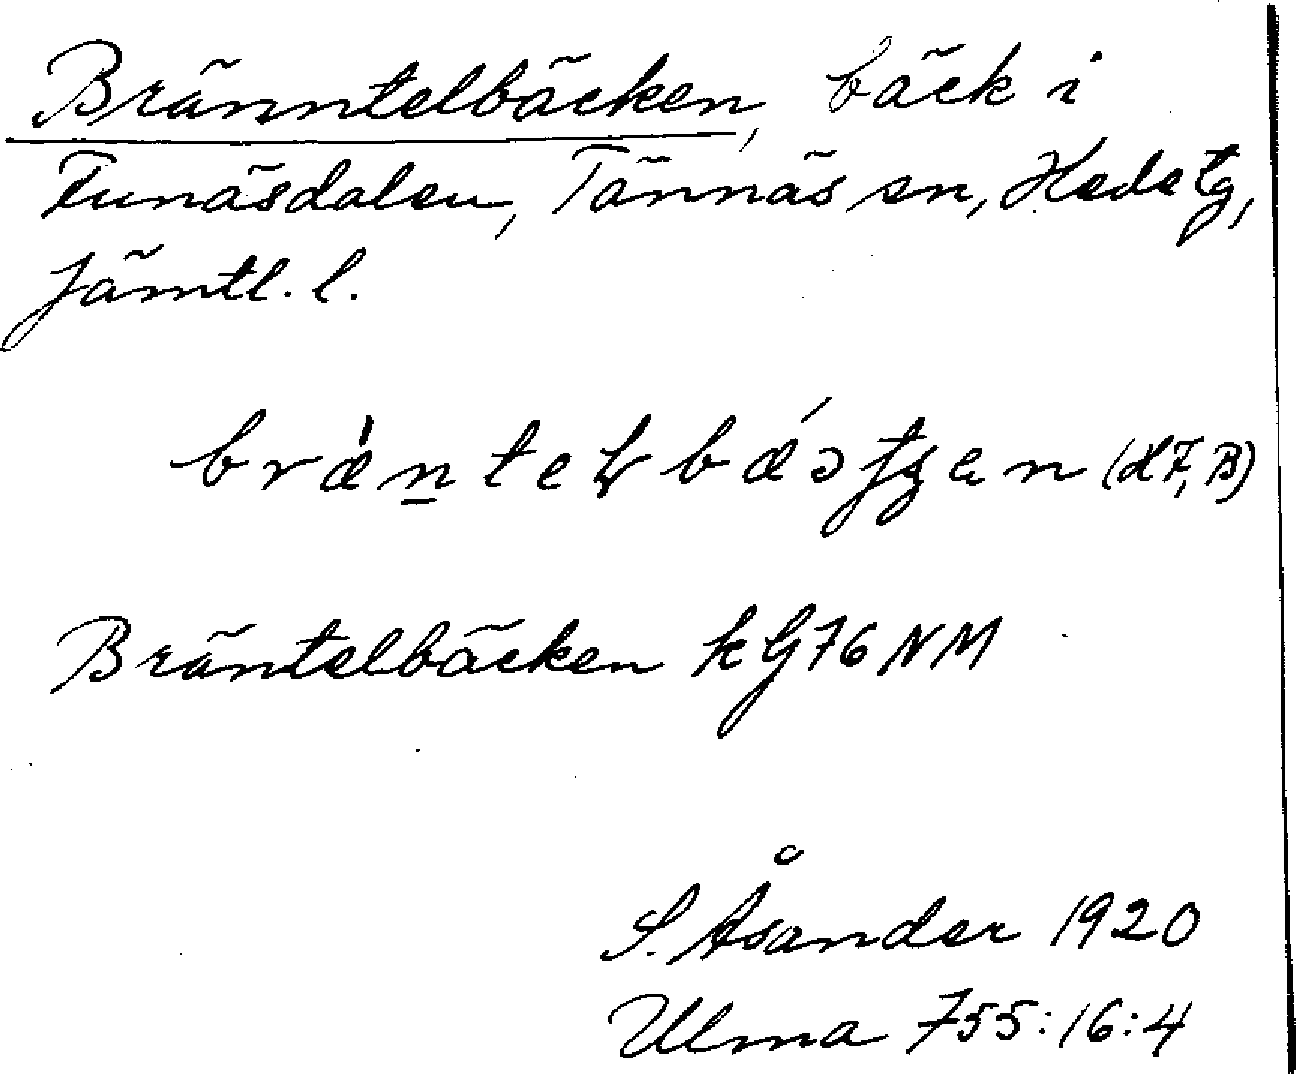 Bränntelbäcken, bäck i
Funäsdalen, Tännäs sn, Hede tg,
Jämtl. l.
Bräntelbäcken kG76NM
S. Åsander 1920
Ulma 755:16:4